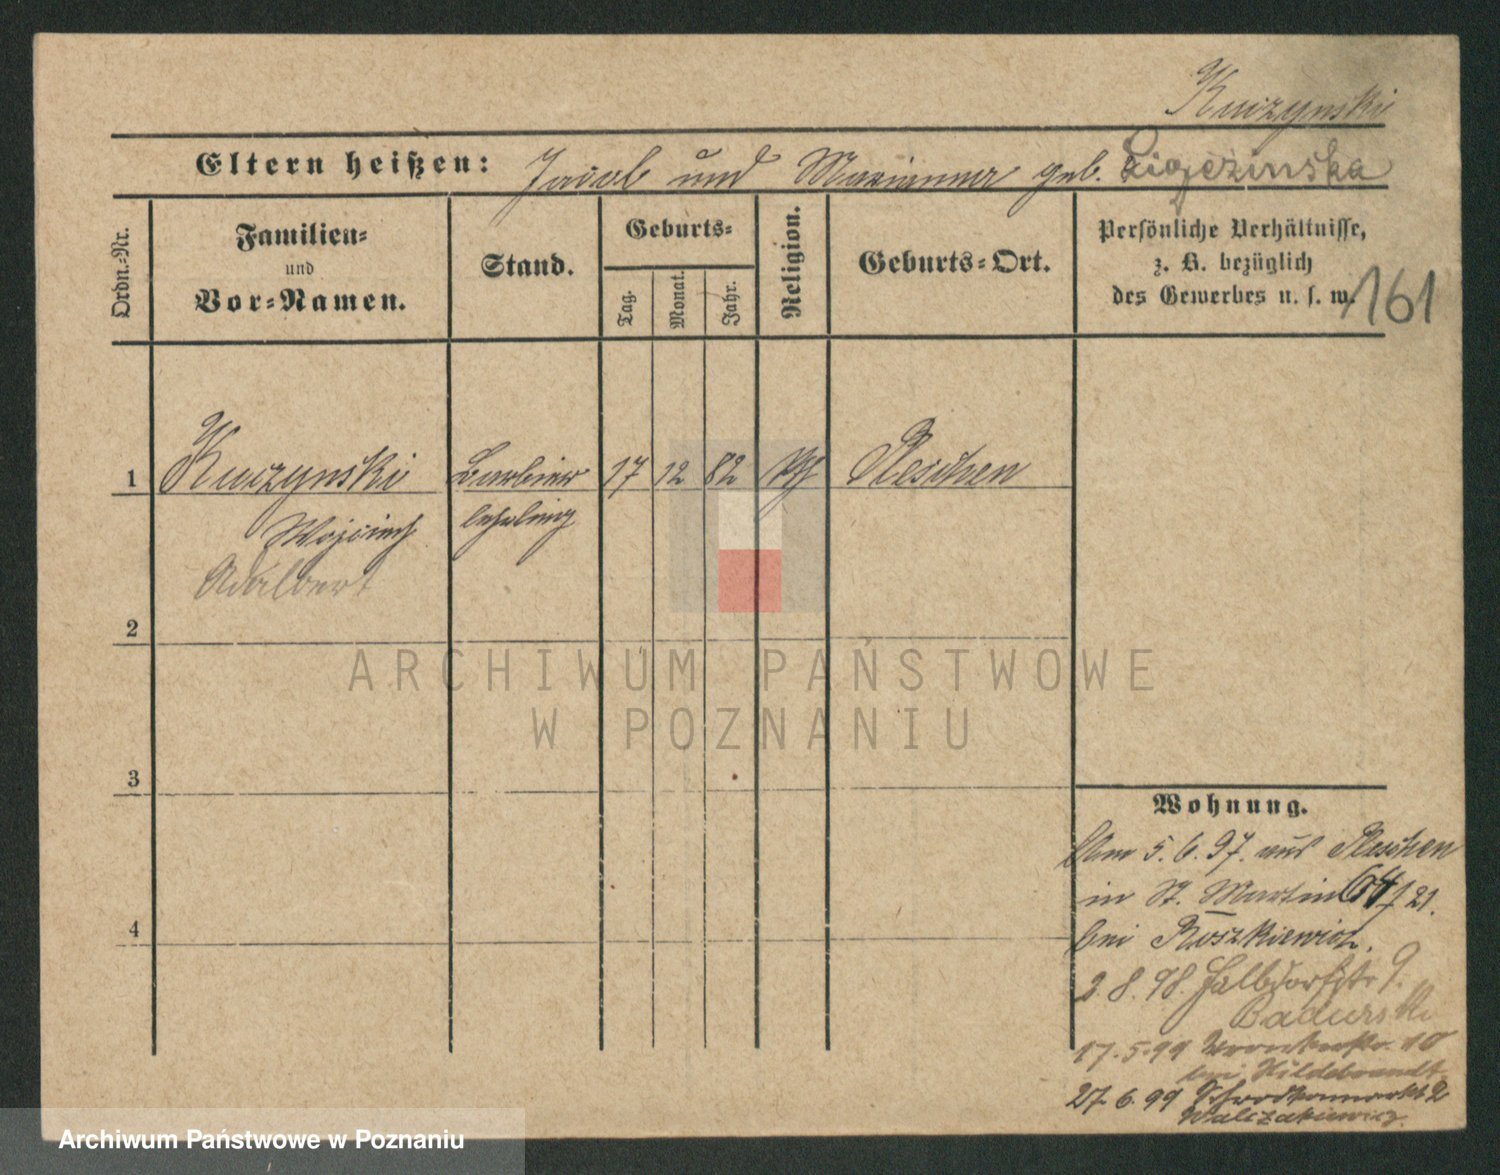 Kuczynski
Eltern heißen: Jacob und Marianna geb. Ligezinska
Ordn.-Nr.
Familien-
und
Vor-Namen.
Stand.
Geburts-
Tag.
Monat.
Jahr.
Religion.
Geburts-Ort.
Persönliche Verhältnisse,
z. B. bezüglich
des Gewerbes u. s. w.
161
1 Kuczynski Barbier 17 12 82 kth Pleschen
Wojciech lehrling
Adalbert
2
3
4
Wohnung.
Am 5.6.97. aus Pleschen
in St. Martin 64 / 21.
bei Roszkiewicz.
2.8.98. Halbdorfstr 9.
Badurski
17.5.99 Wronkerstr. 10
bei Hildebrandt
27.6.99 Schrodkamarkt 2
Walczakiewicz.
ARCHIWUM PAŃSTWOWE
W POZNANIU
Archiwum Państwowe w Poznaniu